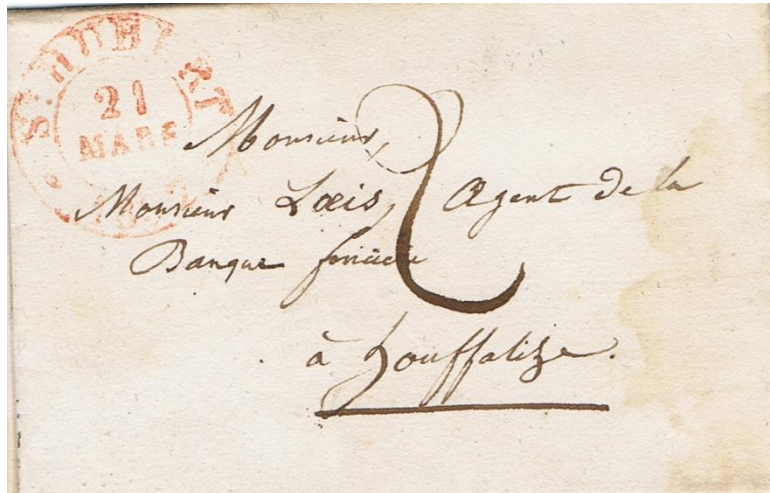 St HUBERT
21
MARS
Monsieur,
Monsieur Loeis, Agent de la
Banque foncière
à houffalize.
2